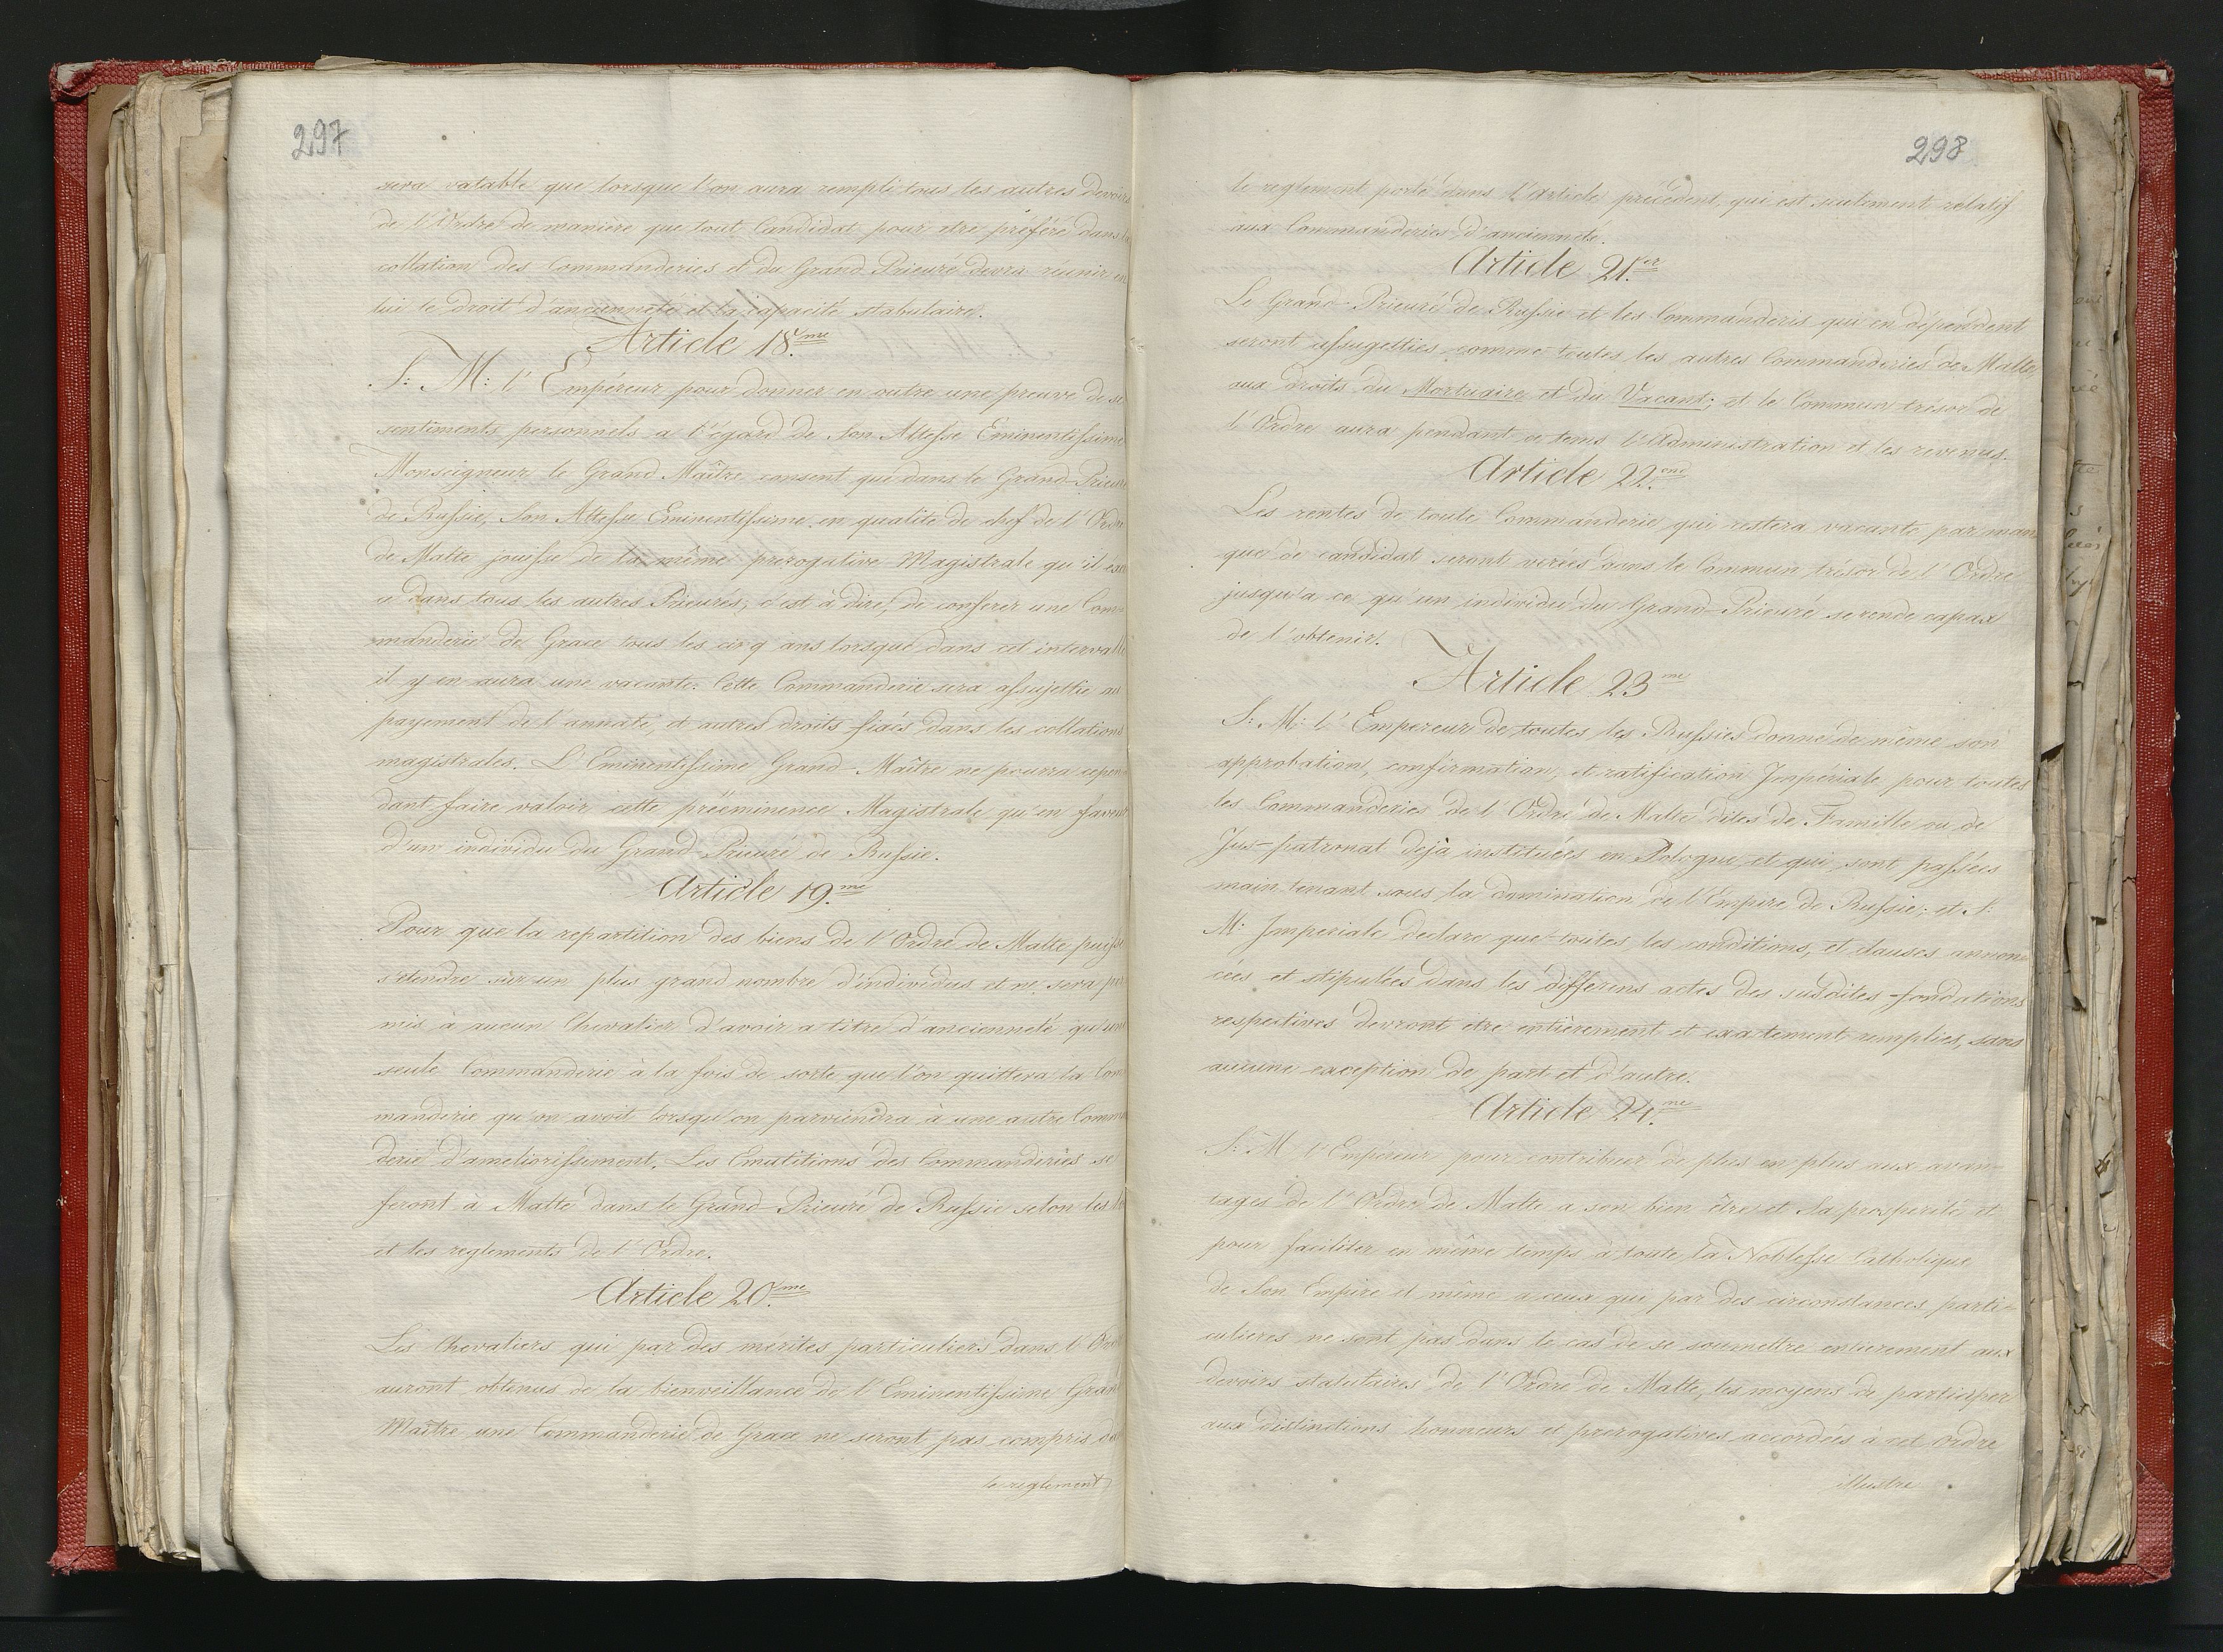 297
sera valable que lorsque l'on aura rempli tous les autres devoirs
de l'Ordre de maniere que tout Candidat pour etre préféré dans la
collation des Commanderies et du Grand Prieuré devra réunir en
lui le droit d'ancienneté et la capacité stabulaire.
Article 18.me
S: M: l'Empéreur pour donner en outre une preuve de se
sentiments personnels a l'égard de Son Altesse Eminentissime
Monseigneur le Grand Maître consent que dans le Grand-Prieuré
de Russie, Son Altesse Eminentissime en qualité de chef de l'Ordre
de Malte jouisse de la même prerogative Magistrale qu'il éxer
ce dans tous les autres Prieurés, c'est à dire, de conferer une Com
manderie de Grace tous les cinq ans lorsque dans cet intervalle
il y en aura une vacante. Cette Commanderie sera assujettie au
payement de l'annate, et autres droits fixés dans les collations
magistrales. L'Eminentissime Grand-Maître ne pourra cepen
dant faire valoir cette prééminence Magistrale qu'en faveur
d'un individu du Grand-Prieuré de Russie.
Article 19.me
Pour que la repartition des biens de l'Ordre de Malte puisse
s'etendre sur un plus grand nombre d'individus et ne sera per
mis à aucun Chevalier d'avoir a titre d'ancienneté qu'une
seule Commanderie à la fois de sorte que l'on quittera la Com
manderie qu'on avoit lorsqu'on parviendra à une autre Comman
derie d'ameliorissement. Les Emutitions des Commanderies se
feront à Malte dans le Grand-Prieuré de Russie selon les
et les reglements de l'Ordre.
Article 20.me
Les Chevaliers qui par des mérites particuliers dans l'Ordre
auront obtenus de la bienveillance de l'Eminentissime Grand
Maître une Commanderie de Grace ne seront pas compris dans
le reglement
298
le reglement porté dans l'article précédent, que est seulement relatif
aux Commanderies d'ancienneté.
Article 21.er
Le Grand-Prieuré de Russie et les Commanderis qui en dépendent
seront assugetties comme toutes les autres Commanderies de Malte
aux droits du Mortuaire et du Vacant; et le Commun trésor de
l'Ordre aura pendant ce tems l'administration et les revenus.
Article 22.me
Les rentes de toute Commanderie qui restera vacante par man
que de candidat seront verées dans le Commun trésor de l'Ordre
jusqu'a ce qu'un individu du Grand-Prieuré se rende capax
de l'obtenir.
Article 23me
S: M: l'Empereur de toutes les Russies donne de même son
approbation, confirmation, et ratification Impériale pour toutes
les Commanderies de l'Ordre de Malte dites de Famille ou de
Jus-patronat dejà instituées en Pologne et qui sont passées
main tenant sous la domination de l'Empire de Russie; et S:
M: Imperiale declare que toutes les conditions, et clauses annon
cées et stipulées dans les differens actes des susdites fondations
respectives devront être entièrement et exactement remplies, sans
aucune exception de part et d'autre.
Article 24.me
S: M l'Empéreur pour contribuer de plus en plus aux avan-
tages de l'Ordre de Malte a son bien être et sa prosperité et
pour faciliter en même temps à toute la Noblesse Catholique
de Son Empire et même a ceux qui par des circonstances parti-
culieres ne sont pas dans le cas de se soumettre entierement aux
devoirs statutaires de l'Ordre de Malte, les moyens de participer
aux distinctions honneurs et prerogatives accordées à cet ordre
illustre